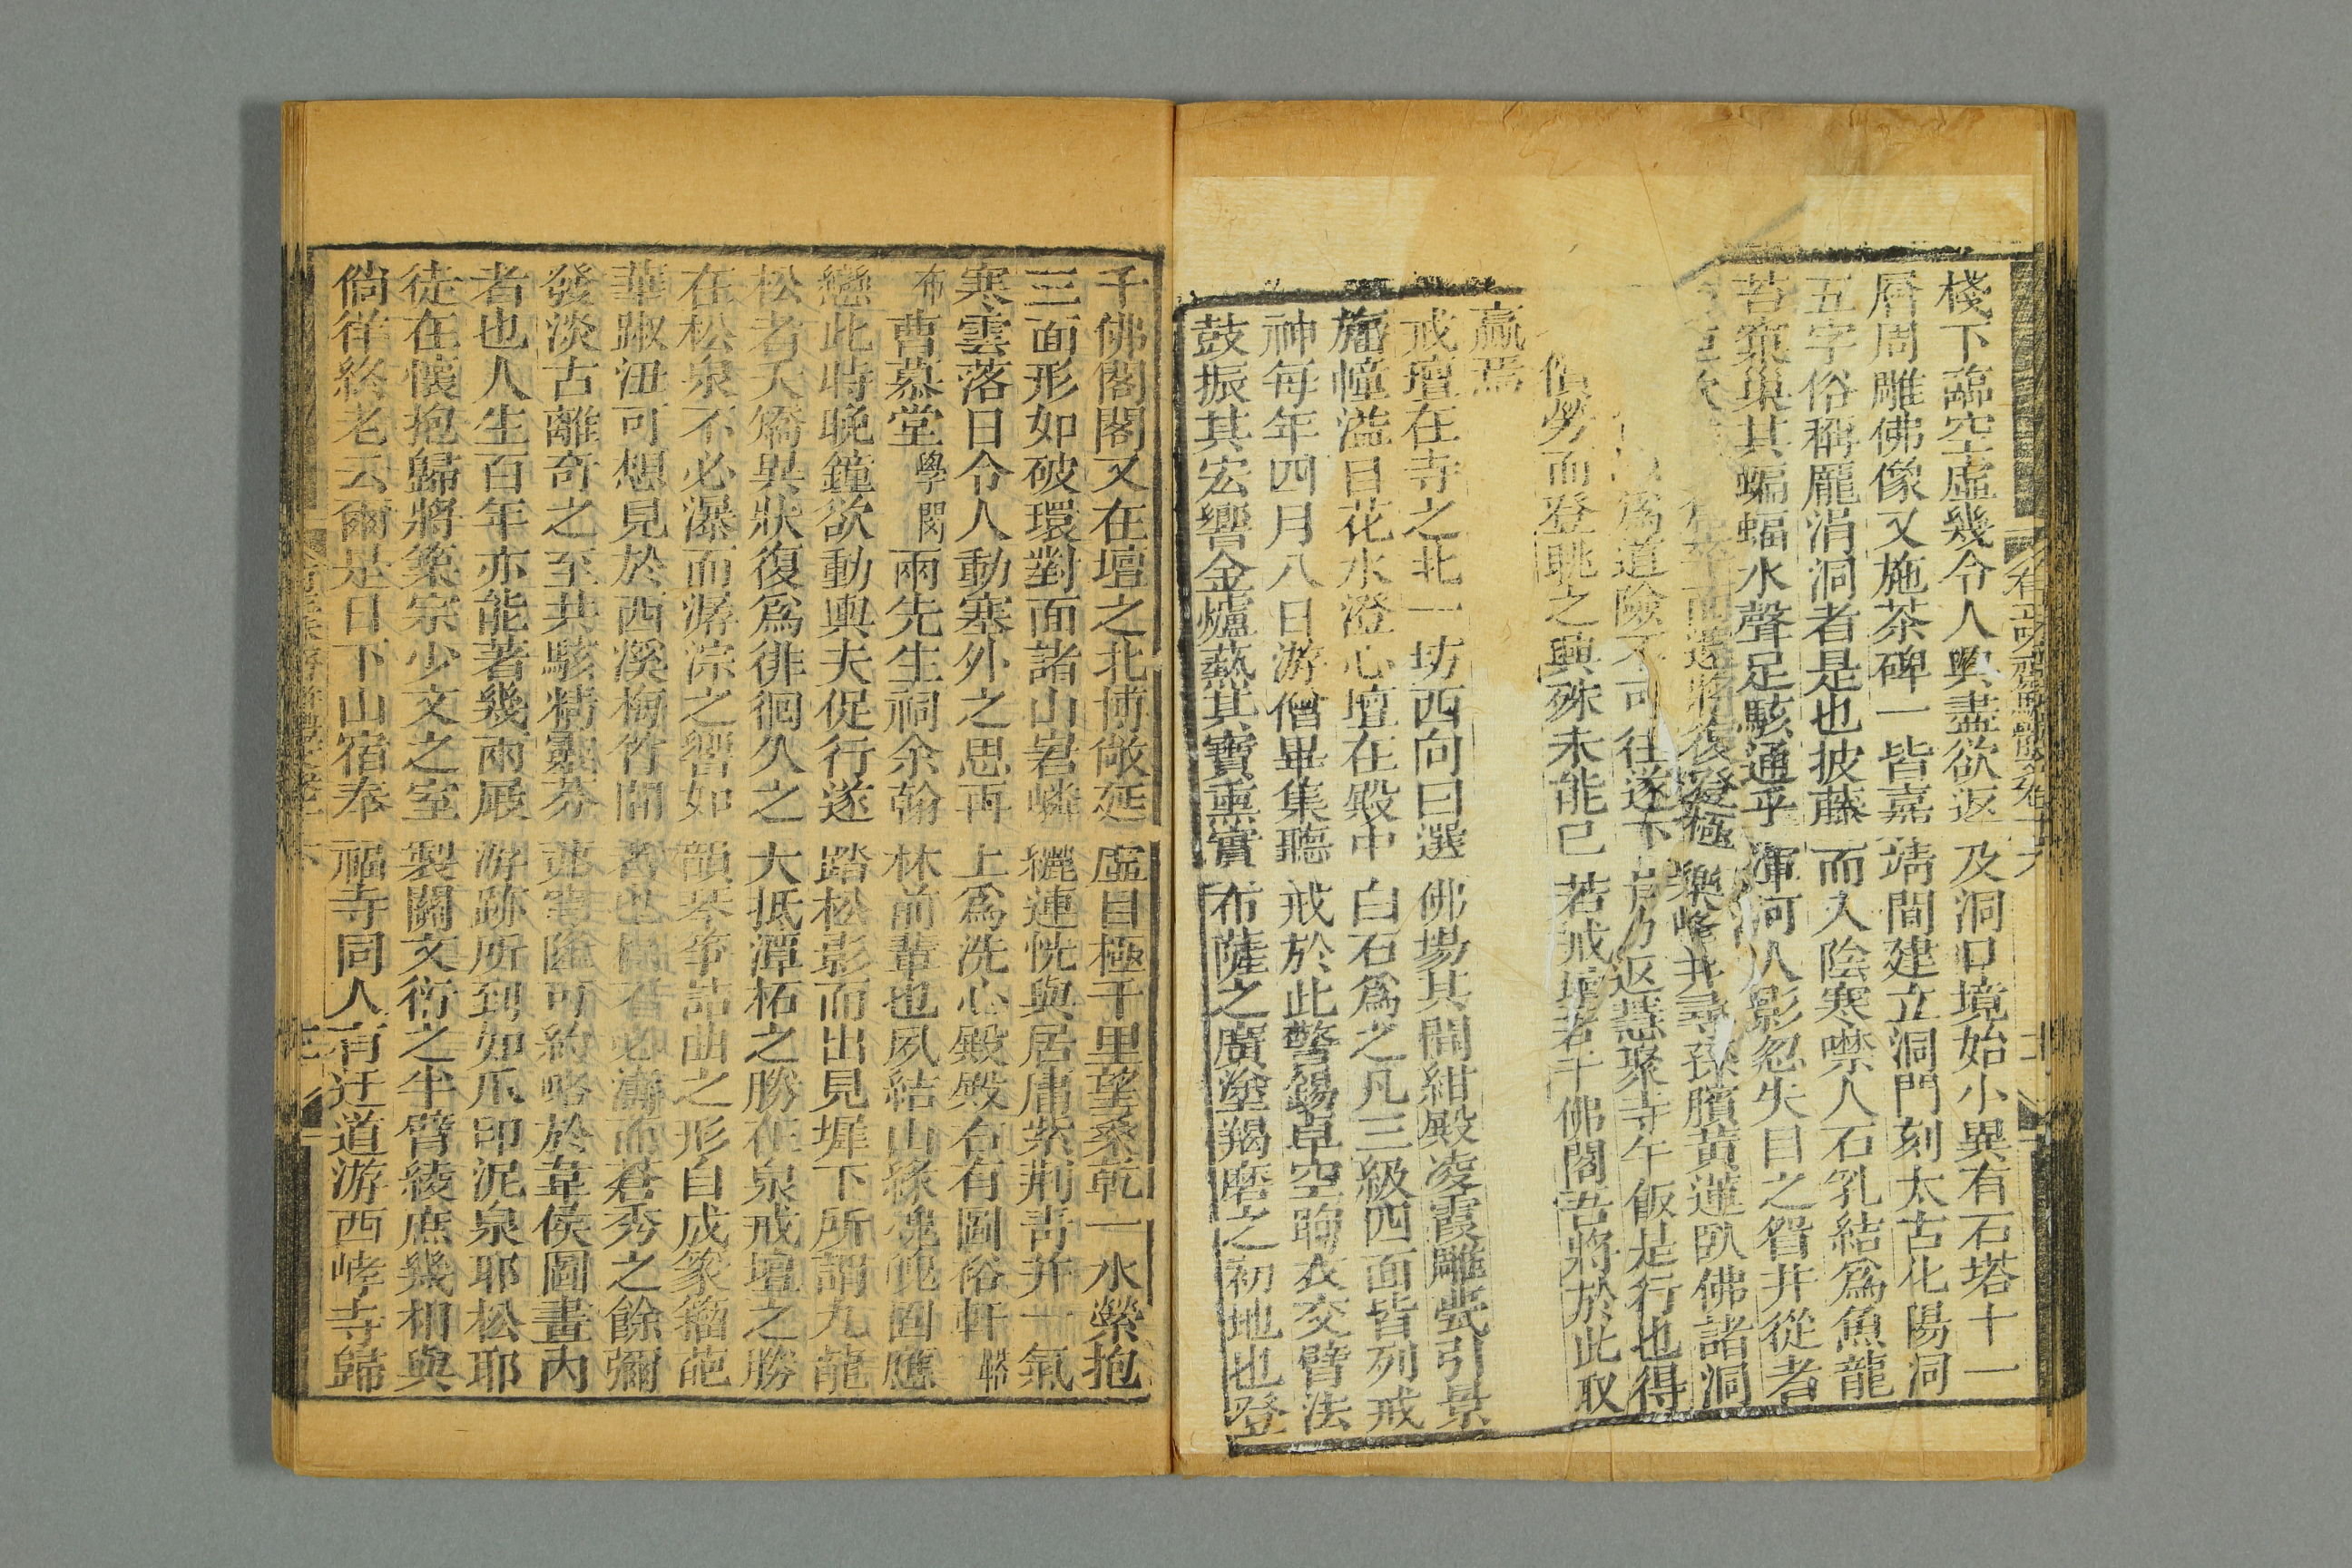 棧下臨空虛幾令人興盡欲返及洞口境始小異有石塔十一
層周雕佛像又施茶碑一皆嘉靖間建立洞門刻太古化陽洞
五字俗稱龐涓洞者是也披藤而入陰寒噤人石乳結為魚龍
若窠巢其蝙蝠水聲足駭通乎渾河人影忽失目之眢井從者
而還將復登極樂峰并尋孫臏黃蓮臥佛諸洞
為道險不可往遂下岩乃返慧聚寺午飯是行也得
償勞而登眺之興殊未能已若戒壇若千佛閣吾將於此取
贏焉
戒壇在寺之北一坊西向曰選佛場其間紺殿凌霞雕甍引景
旛幢溢目花水澄心壇在殿中白石為之凡三級四面皆列戒
神每年四月八日游僧畢集聽戒於此警錫卓空跔衣交臂法
鼓振其宏響金爐爇其寶熏實布薩之廣塗羯磨之初地也登
千佛閣閣又在壇之北博敞延虛目極千里望桑乾一水縈抱
三面形如破環對面諸山岩嶙纚連恍與居庸紫荊青并一氣
寒雲落日令人動塞外之思再上為洗心殿殿右有圖裕軒
布曹慕堂學閔兩先生祠余翰林前輩也夙結山緣魂魄固應
戀此時晚鐘欲動輿夫促行遂踏松影而出見墀下所謂九龍
松者夭矯異狀復為徘徊久之大抵潭柘之勝在泉戒壇之勝
在松泉不必瀑而潺淙之響如韻琴箏詰曲之形自成象籀葩
華踧沑可想見於西溪梅竹間 必濤而蒼秀之餘彌
發淡古離奇之至共駭精靈芬 可約略於韋侯圖畫內
者也人生百年亦能著幾兩屐游跡所到如爪印泥泉耶松耶
徒在懷抱歸將築宗少文之室製關文衍之半臂綾庶幾相與
倘徉終老云爾是日下山宿奉福寺同人有迂道游西峰寺歸